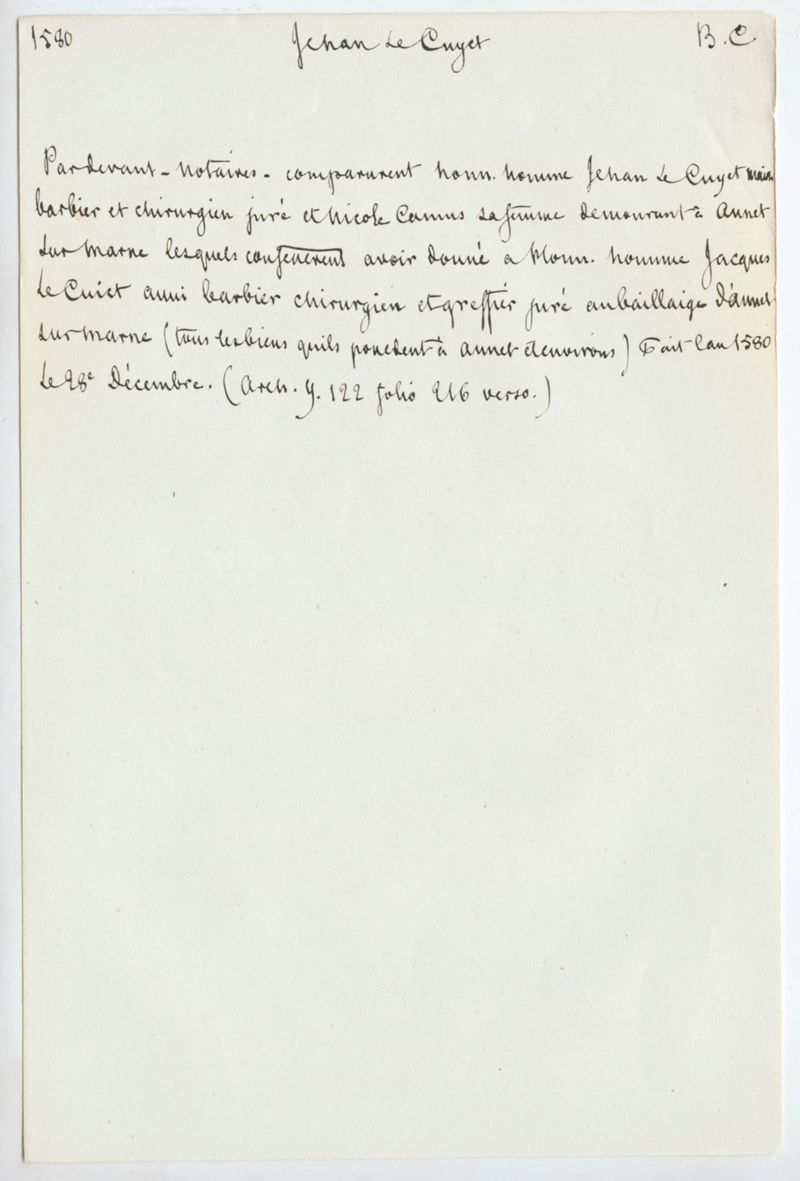 1580 Jehan Le Cuyet B.C
Pardevant - notaires - comparurent honn. homme Jehan Le Cuyet
barbier et chirurgien juré et Nicole Camus sa femme demourant à Annet
sur Marne lesquels confesserent avoir donné a Honn. homme Jacques
Le Cuiet aussi barbier chirurgien et greffier juré au baillaige d'Annet
sur Marne (tous les biens quils possedent à Annet et environs) Fait l'an 1580
Le 28e Décembre. (Arch. Y. 122 folio 216 verso.)